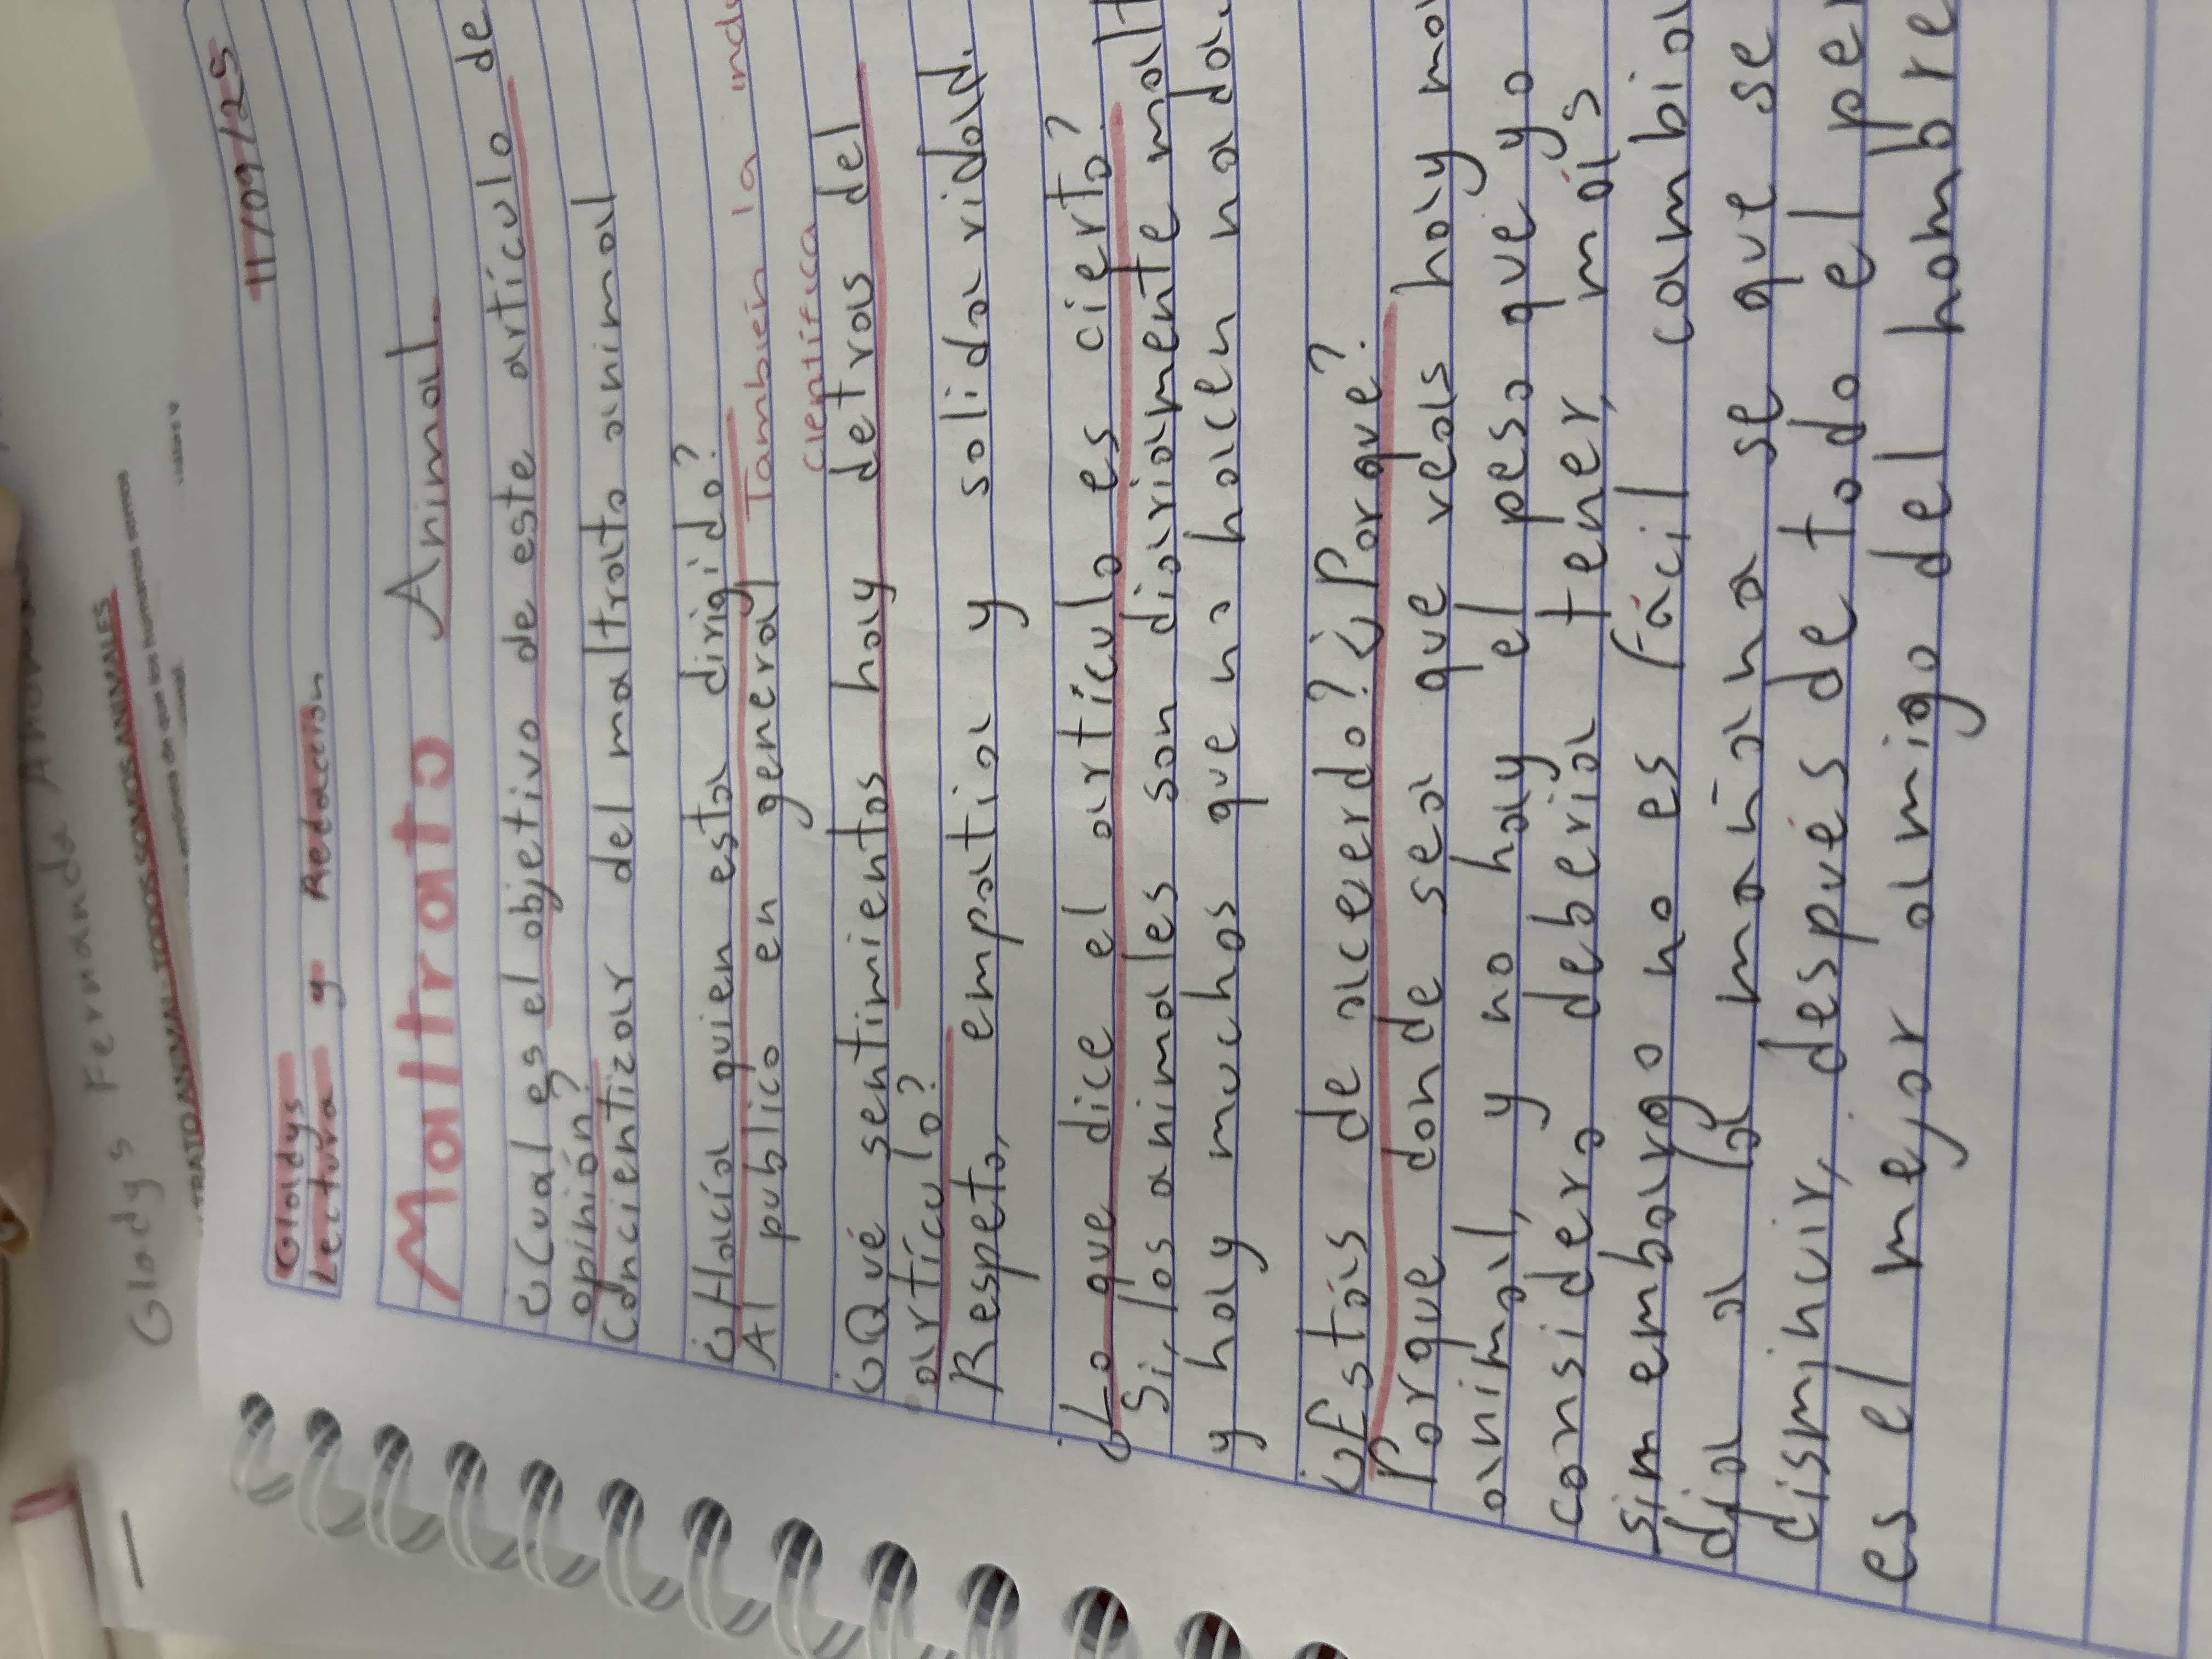 Gladys Fernanda
TODOS SOMOS ANIMALES
11/09/25
Gladys
Lectura y Redacción
Maltrato Animal.
¿Cual es el objetivo de este artículo de
opinión?
Concientizar del maltrato animal
¿Hacía quien esta dirigido?
Al publico en general También la
Cientifica
¿Qué sentimientos hay detras del
artículo?
Respeto, empatia y solidaridad.
¿Lo que dice el artículo es cierto?
Si, los animales son diariamente
y hay muchos que no hacen nada.
¿Estás de acuerdo? ¿Porque?
Porque donde sea que veas hay
animal, y no hay el peso que yo
considero deberia tener, más
sin embargo no es fácil cambiar
dia a la mañana se que se
disminuir, después de todo el
es el mejor amigo del hombre